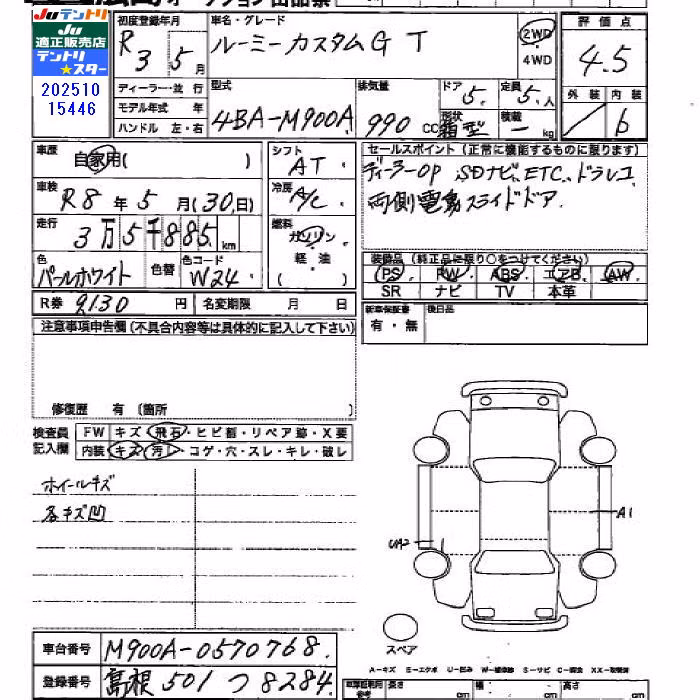 Juテントリ
Ju
適正販売店
テントリ
★スター
202510
15446
初度登録年月
R3 5月
車名・グレード
ルーミーカスタムG T
2WD
4WD
評価点
4.5
外装 内装
b
ディーラー・並行
モデル年式 年
ハンドル 左・右
型式
4BA-M900A
排気量
990 cc
ドア 5.
形状 箱型
定員 5.人
積載 - kg
車歴
自家用( )
車検
R8年5月(30.日)
走行
3万5千885.km
色
パールホワイト
色替
色コード
W24
R券 9130 円
名変期限 月 日
シフト
AT
冷房
A/C
燃料
ガソリン
軽・油
( )
セールスポイント(正常に機能するものに限ります)
ディーラーOP SDナビ、ETC、ドラレコ
両側電動スライドドア.
装備品(純正品に限り○をつけてください)
PS PW ABS エアB AW
SR ナビ TV 本革
新車保証書
有・無
後日品
注意事項申告欄(不具合内容等は具体的に記入して下さい)
修復歴 有 (箇所 )
検査員
記入欄
FW キズ・飛石・ヒビ割・リペア跡・X要
内装 キズ・汚レ・コゲ・穴・スレ・キレ・破レ
ホイールキズ
各キズ凹
UA2
A1
スペア
A-キズ E-エクボ U-凹み W-補修跡 S-サビ C-腐蝕 XX-交換済
車台番号 M900A-0570768.
登録番号 島根 501 つ 8284.
長さ cm
幅 cm
高さ cm